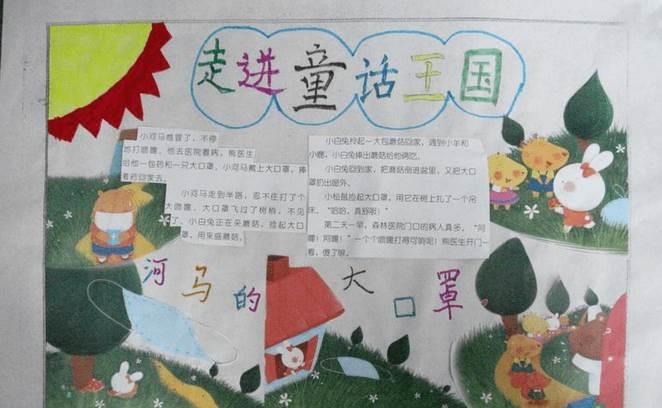 走进童话王国
小河马感冒了，不停
地打喷嚏，他去医院看病，熊医生
给他一包药和一只大口罩，小河马戴上大口罩，捧
着药回家去。
小河马走到半路，忍不住打了个
大喷嚏，大口罩飞过了树梢，不见
了。小白兔正在采蘑菇，捡起大口
罩，用来盛蘑菇。
小白兔拎起一大包蘑菇回家，遇到小羊和
小鹿，小白兔捧出蘑菇给他俩吃。
小白兔回到家，把蘑菇倒进盆里，又把大口
罩扔出窗外。
小松鼠捡起大口罩，用它在树上扎了一个吊
床，“哈哈，真舒服！”
第二天一早，森林医院门口的病人真多，“阿
嚏！阿嚏！”一个个喷嚏打得可响呢！熊医生开门一
看，傻了眼。
河马的大口罩